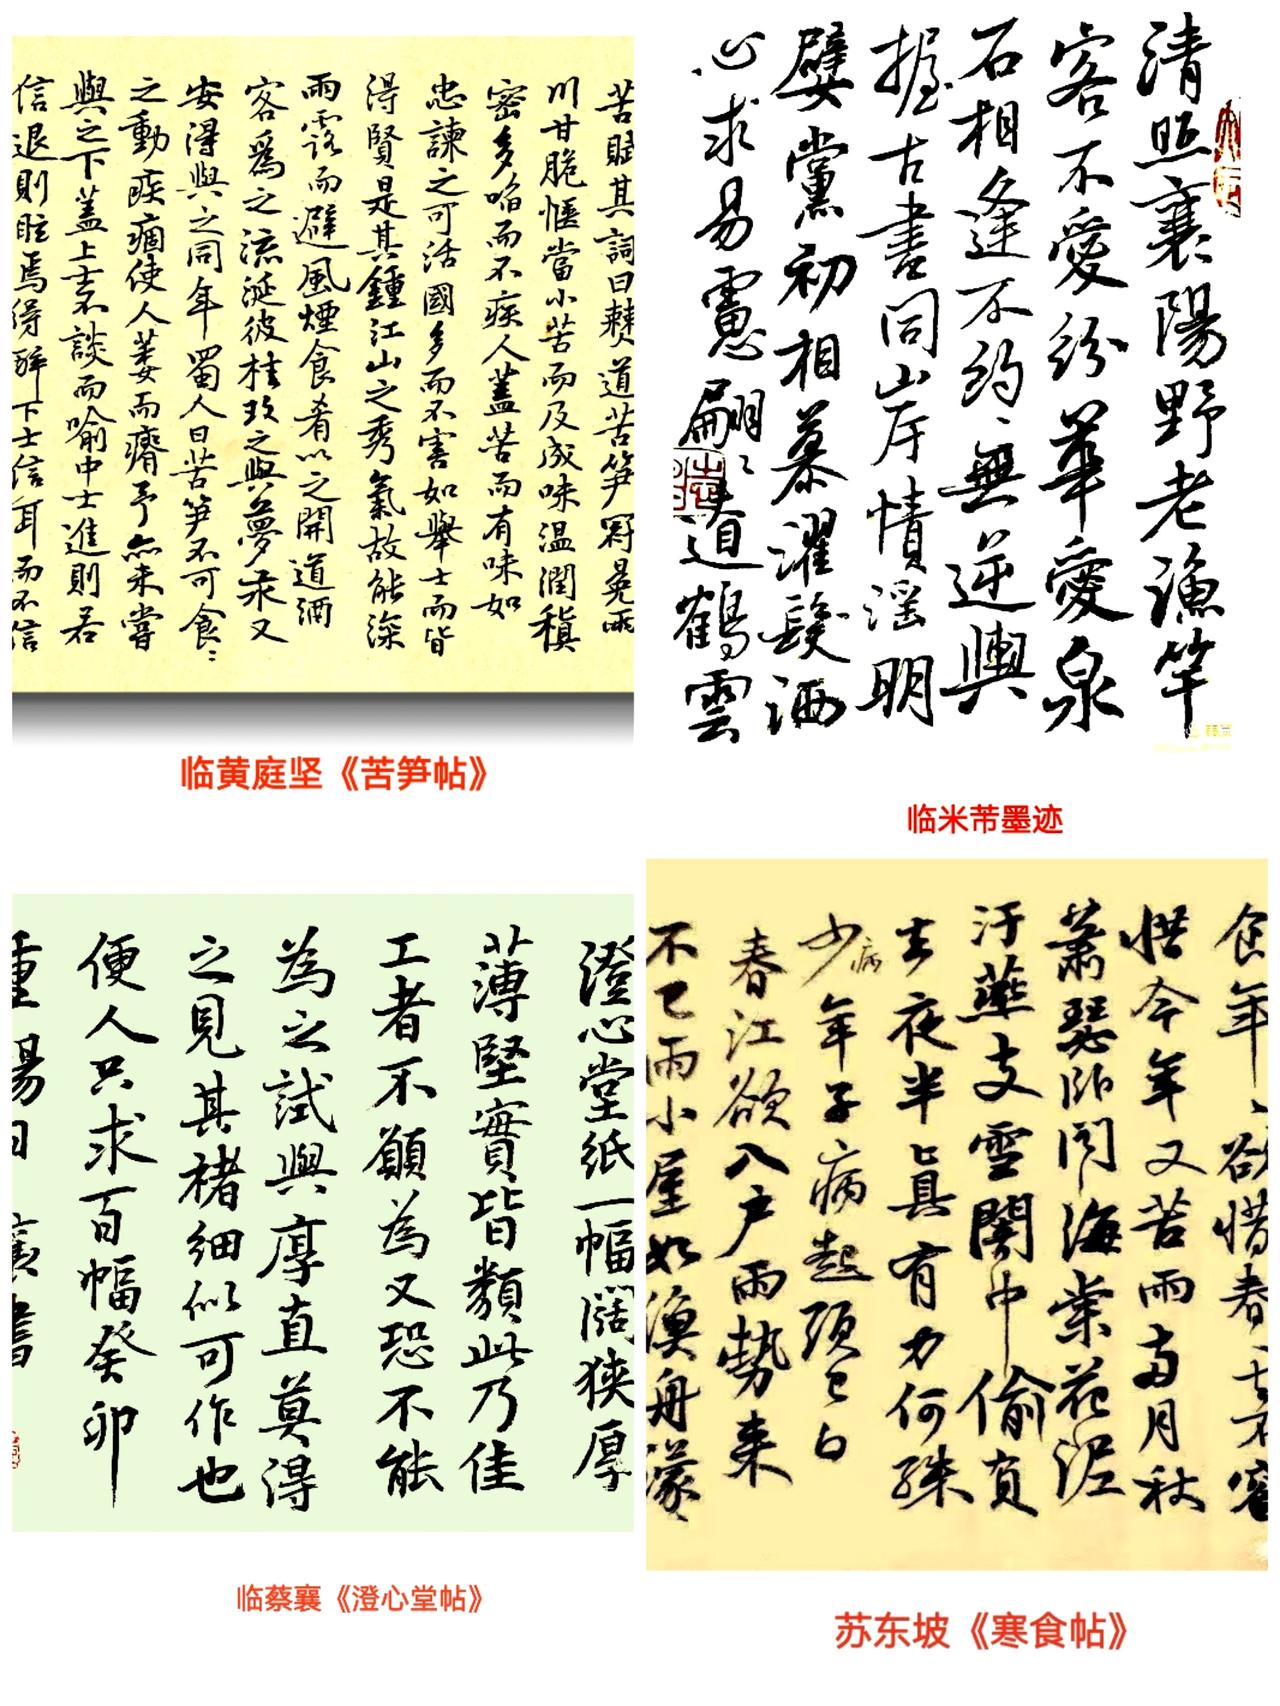 苦賦其詞曰僰道苦笋冠冕兩
川甘脆愜當小苦而及成味温潤稹
密多啗而不疾人盖苦而有味如
忠諫之可活國多而不害如舉士而皆
得賢是其鍾江山之秀氣故能深
雨露而避風煙食肴以之開道酒
客爲之流涎彼桂玫之與夢汞又
安得與之同年蜀人曰苦笋不可食〻
之動疾痼使人萎而瘠予亦未嘗
與之下盖上士不談而喻中士進則若
信退則眩焉得醉下士信耳而不信
临黄庭坚《苦笋帖》
清熙襄陽野老漁竿
客不愛紛華愛泉
石相逢不約〻無逆輿
握古書同山岸幘淫明
嬖黨初相慕濯髮洒
心求易慮翩〻鶴雲
临米芾墨迹
澄心堂紙一幅闊狹厚
薄堅實皆類此乃佳
工者不願為又恐不能
為之試與厚直莫得
之見其楮細似可作也
便人只求百幅癸卯
重陽日襄書
临蔡襄《澄心堂帖》
食年〻欲惜春〻去不容
惜今年又苦雨兩月秋
蕭瑟卧聞海棠花泥
汙燕支雪闇中偷負
去夜半真有力何殊
少年子病起頭已白
病
春江欲入户雨勢来
不已雨小屋如漁舟濛
苏东坡《寒食帖》